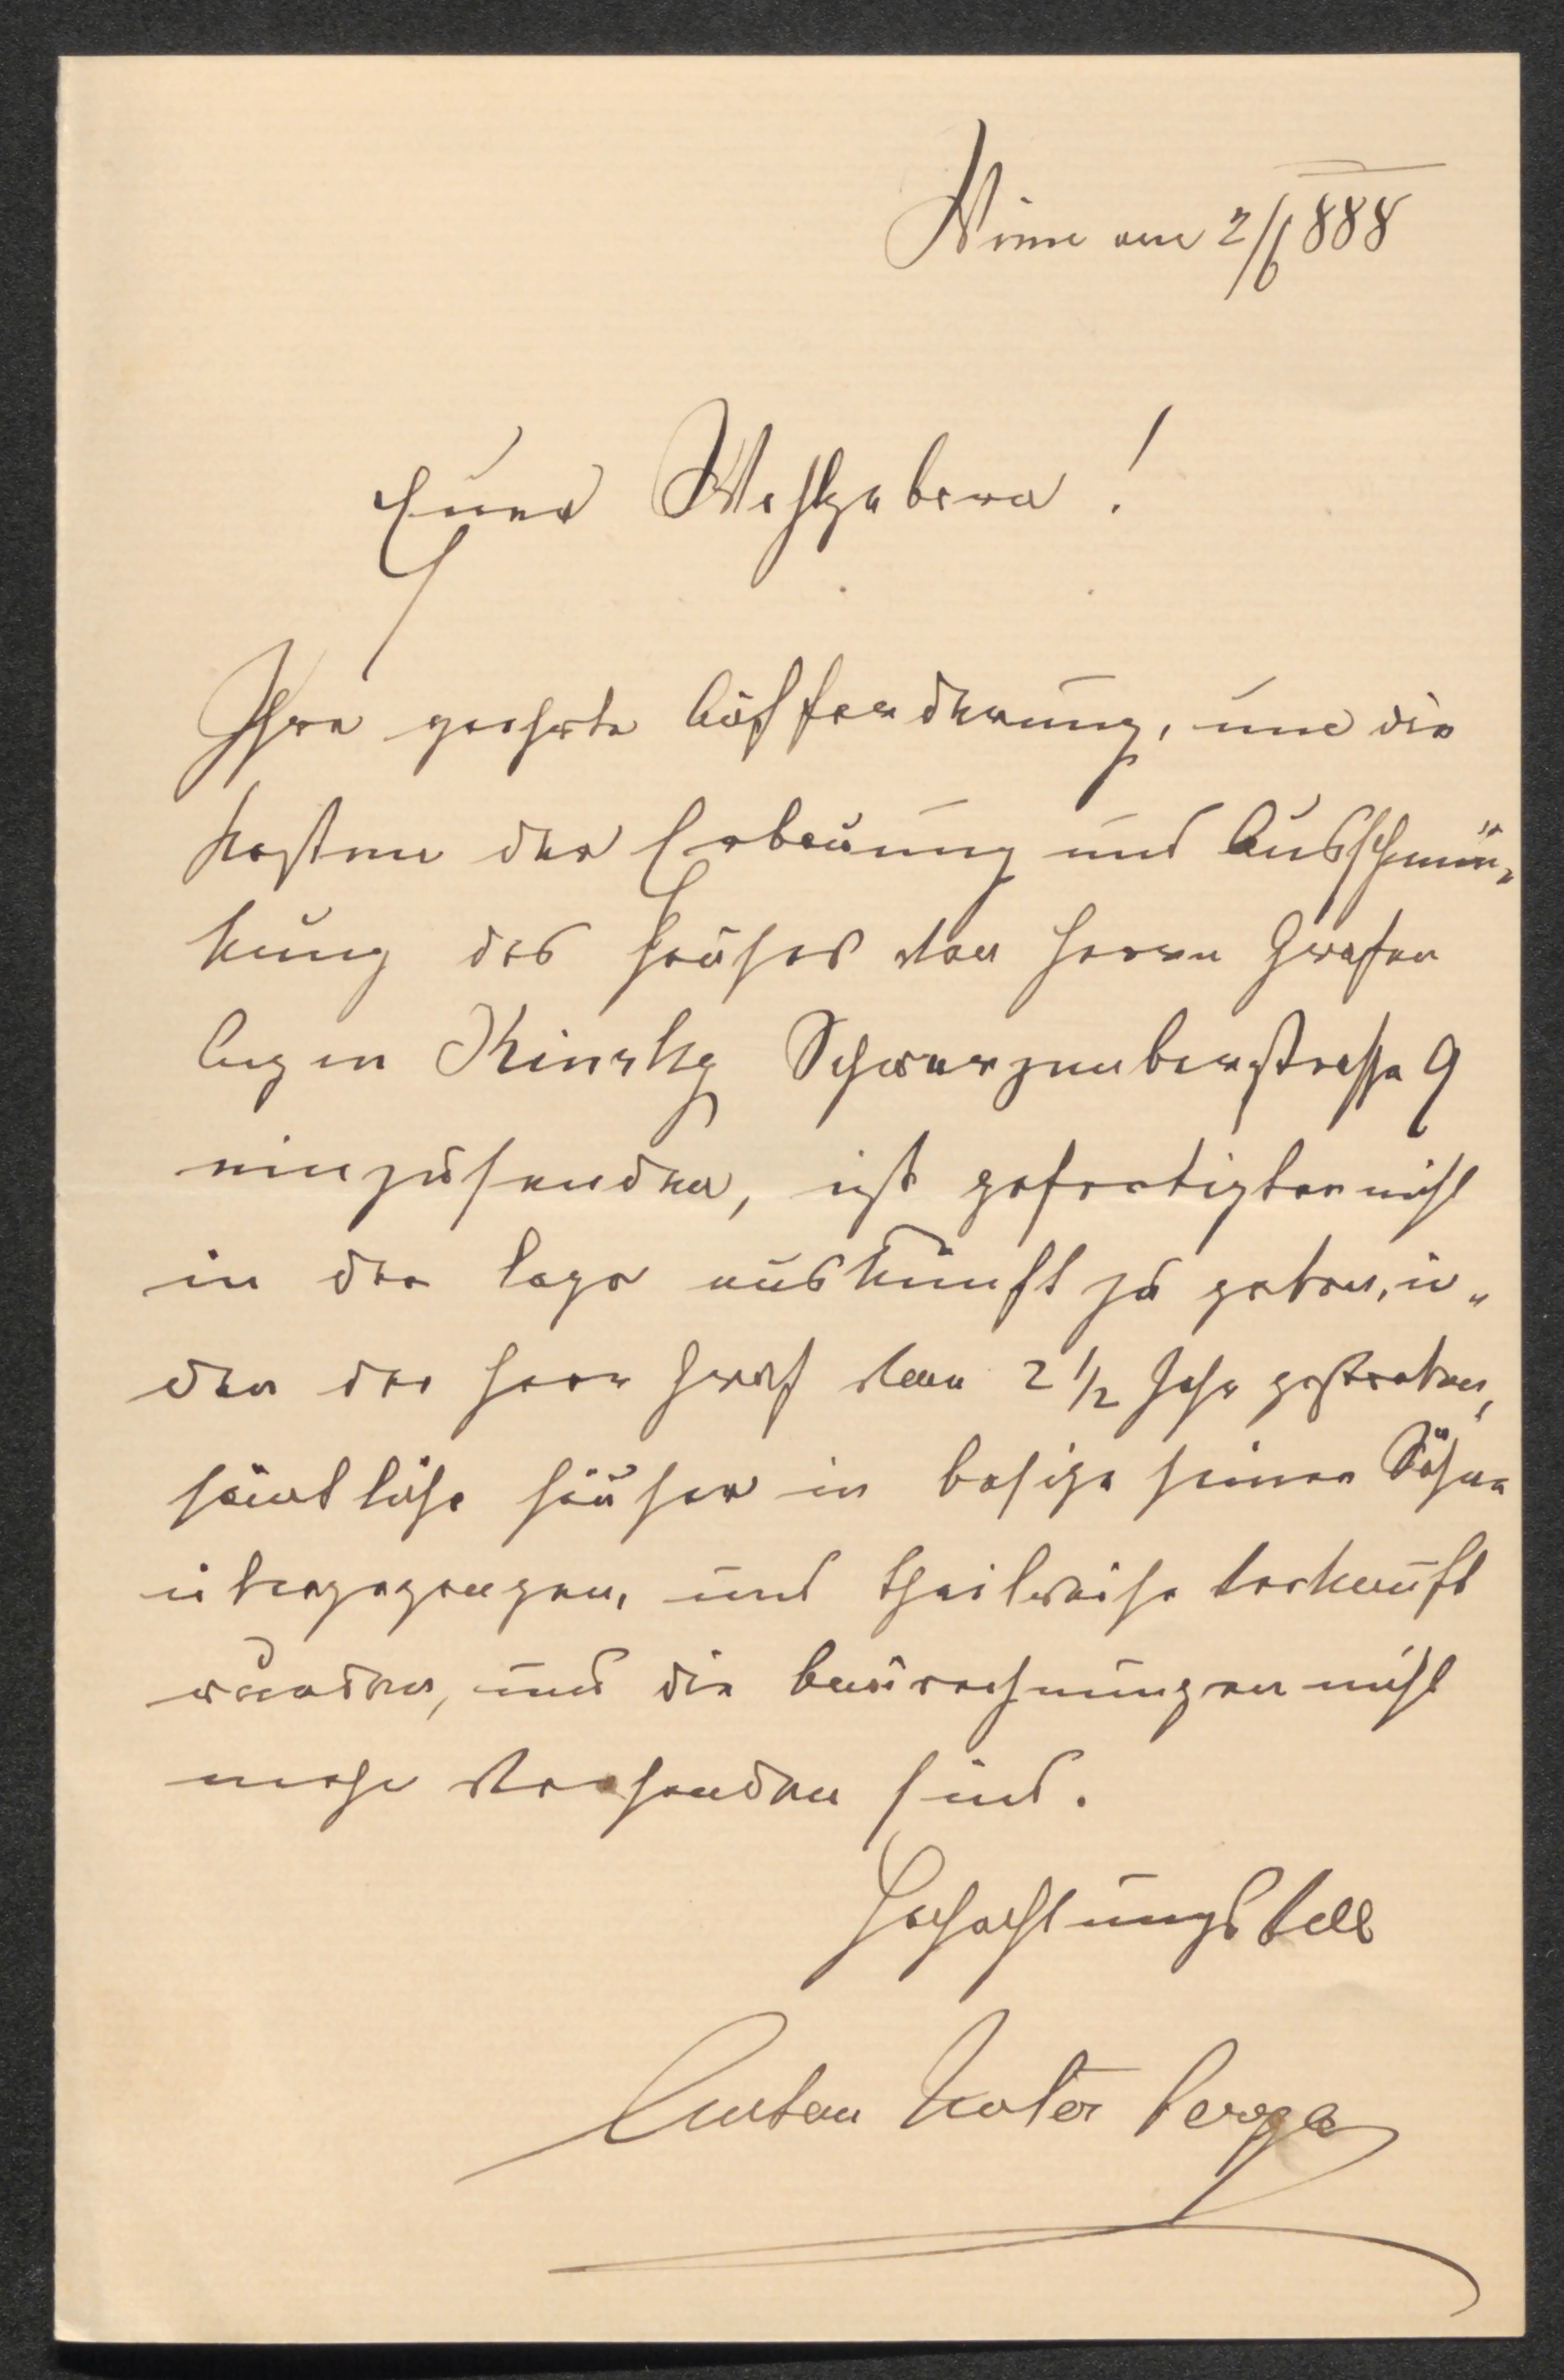 Wien am 2/6 888
Euer Wohlgeboren!
Ihre geehrte Aufforderung, um die
kosten der Erbauung und Ausschmü„
kung des Hauses von Herrn Grafen
Eugen Kinsky Schwarzenbergstrasse 9
einzusenden, ist gefertigter nicht
in der lage auskunft zu geben, in„
den der Herr Graf vor 2 1/2 Jahr gestorben,
sämtliche häuser in besitze seiner Söhne
übergegangen, und theilweise verkauft
wurden, und die baurechnungen nicht
mehr vorhanden sind.
Hochachtungsvoll
Anton